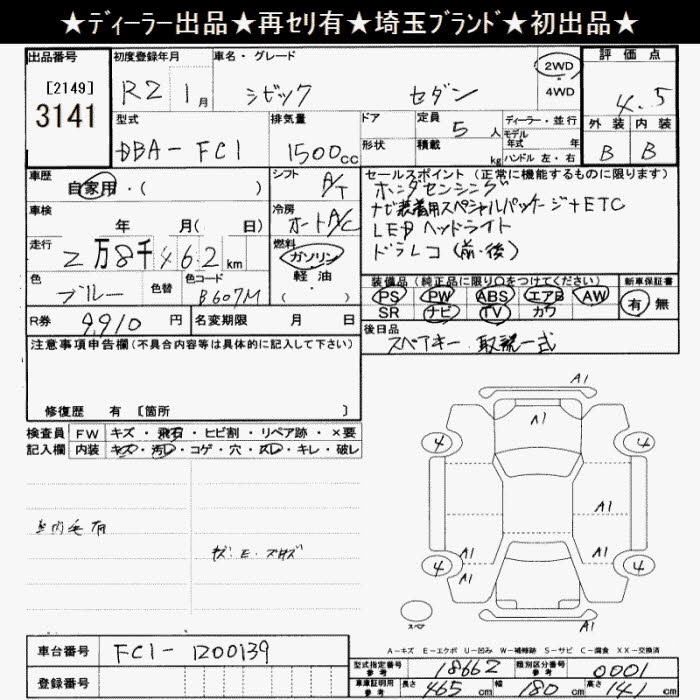 ★ディーラー出品★再セリ有★埼玉ブランド★初出品★
出品番号 初度登録年月 車名・グレード 評価点
[2149] R2 1月 シビック セダン 2WD ・ 4WD 4.5
3141
型式 排気量 ドア 定員 5人 ディーラー・並行 外装 内装
DBA-FC1 1500cc 形状 積載 kg モデル年式 年 ハンドル 左・右 B B
車歴 シフト セールスポイント (正常に機能するものに限ります)
自家用・( ) A/T ホンダセンシング
車検 冷房 ナビ装着用スペシャルパッケージ+ETC
年 月( 日) オートA/C LEDヘッドライト
走行 燃料 ドラレコ(前・後)
2万8千462km ガソリン
色 色替 色コード 軽油 装備品 (純正品に限り○をつけてください) 新車保証書
ブルー B607M ( ) PS PW ABS エアB AW 有 無
SR ナビ TV カワ
R券 9,910円 名変期限 月 日 後日品
注意事項申告欄 (不具合内容等は具体的に記入して下さい) スペアキー 取説一式
修復歴 有 [箇所 ]
検査員 FW キズ・飛石・ヒビ割・リペア跡・×要
記入欄 内装 キズ・汚レ・コゲ・穴・スレ・キレ・破レ
A1
A1
4 4
A1
室内毛有
A1 A1
4 4
A1
スペア
A1
A-キズ E-エクボ U-凹み W-補修跡 S-サビ C-腐食 XX-交換済
車台番号 FC1-1200139
型式指定番号 参考 18662 類別区分番号 参考 0001
登録番号 車庫証明用 参考 長さ 465cm 幅 180cm 高さ 141cm